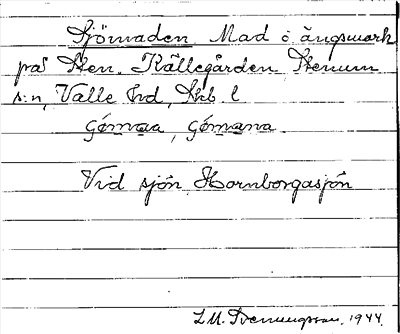 Sjömaden Mad o ängsmark
på Sten. Källegården Stenum
s:n, Valle hd, Skb. l
Vid sjön Hornborgasjön
L.M. Svenungsson. 1944.